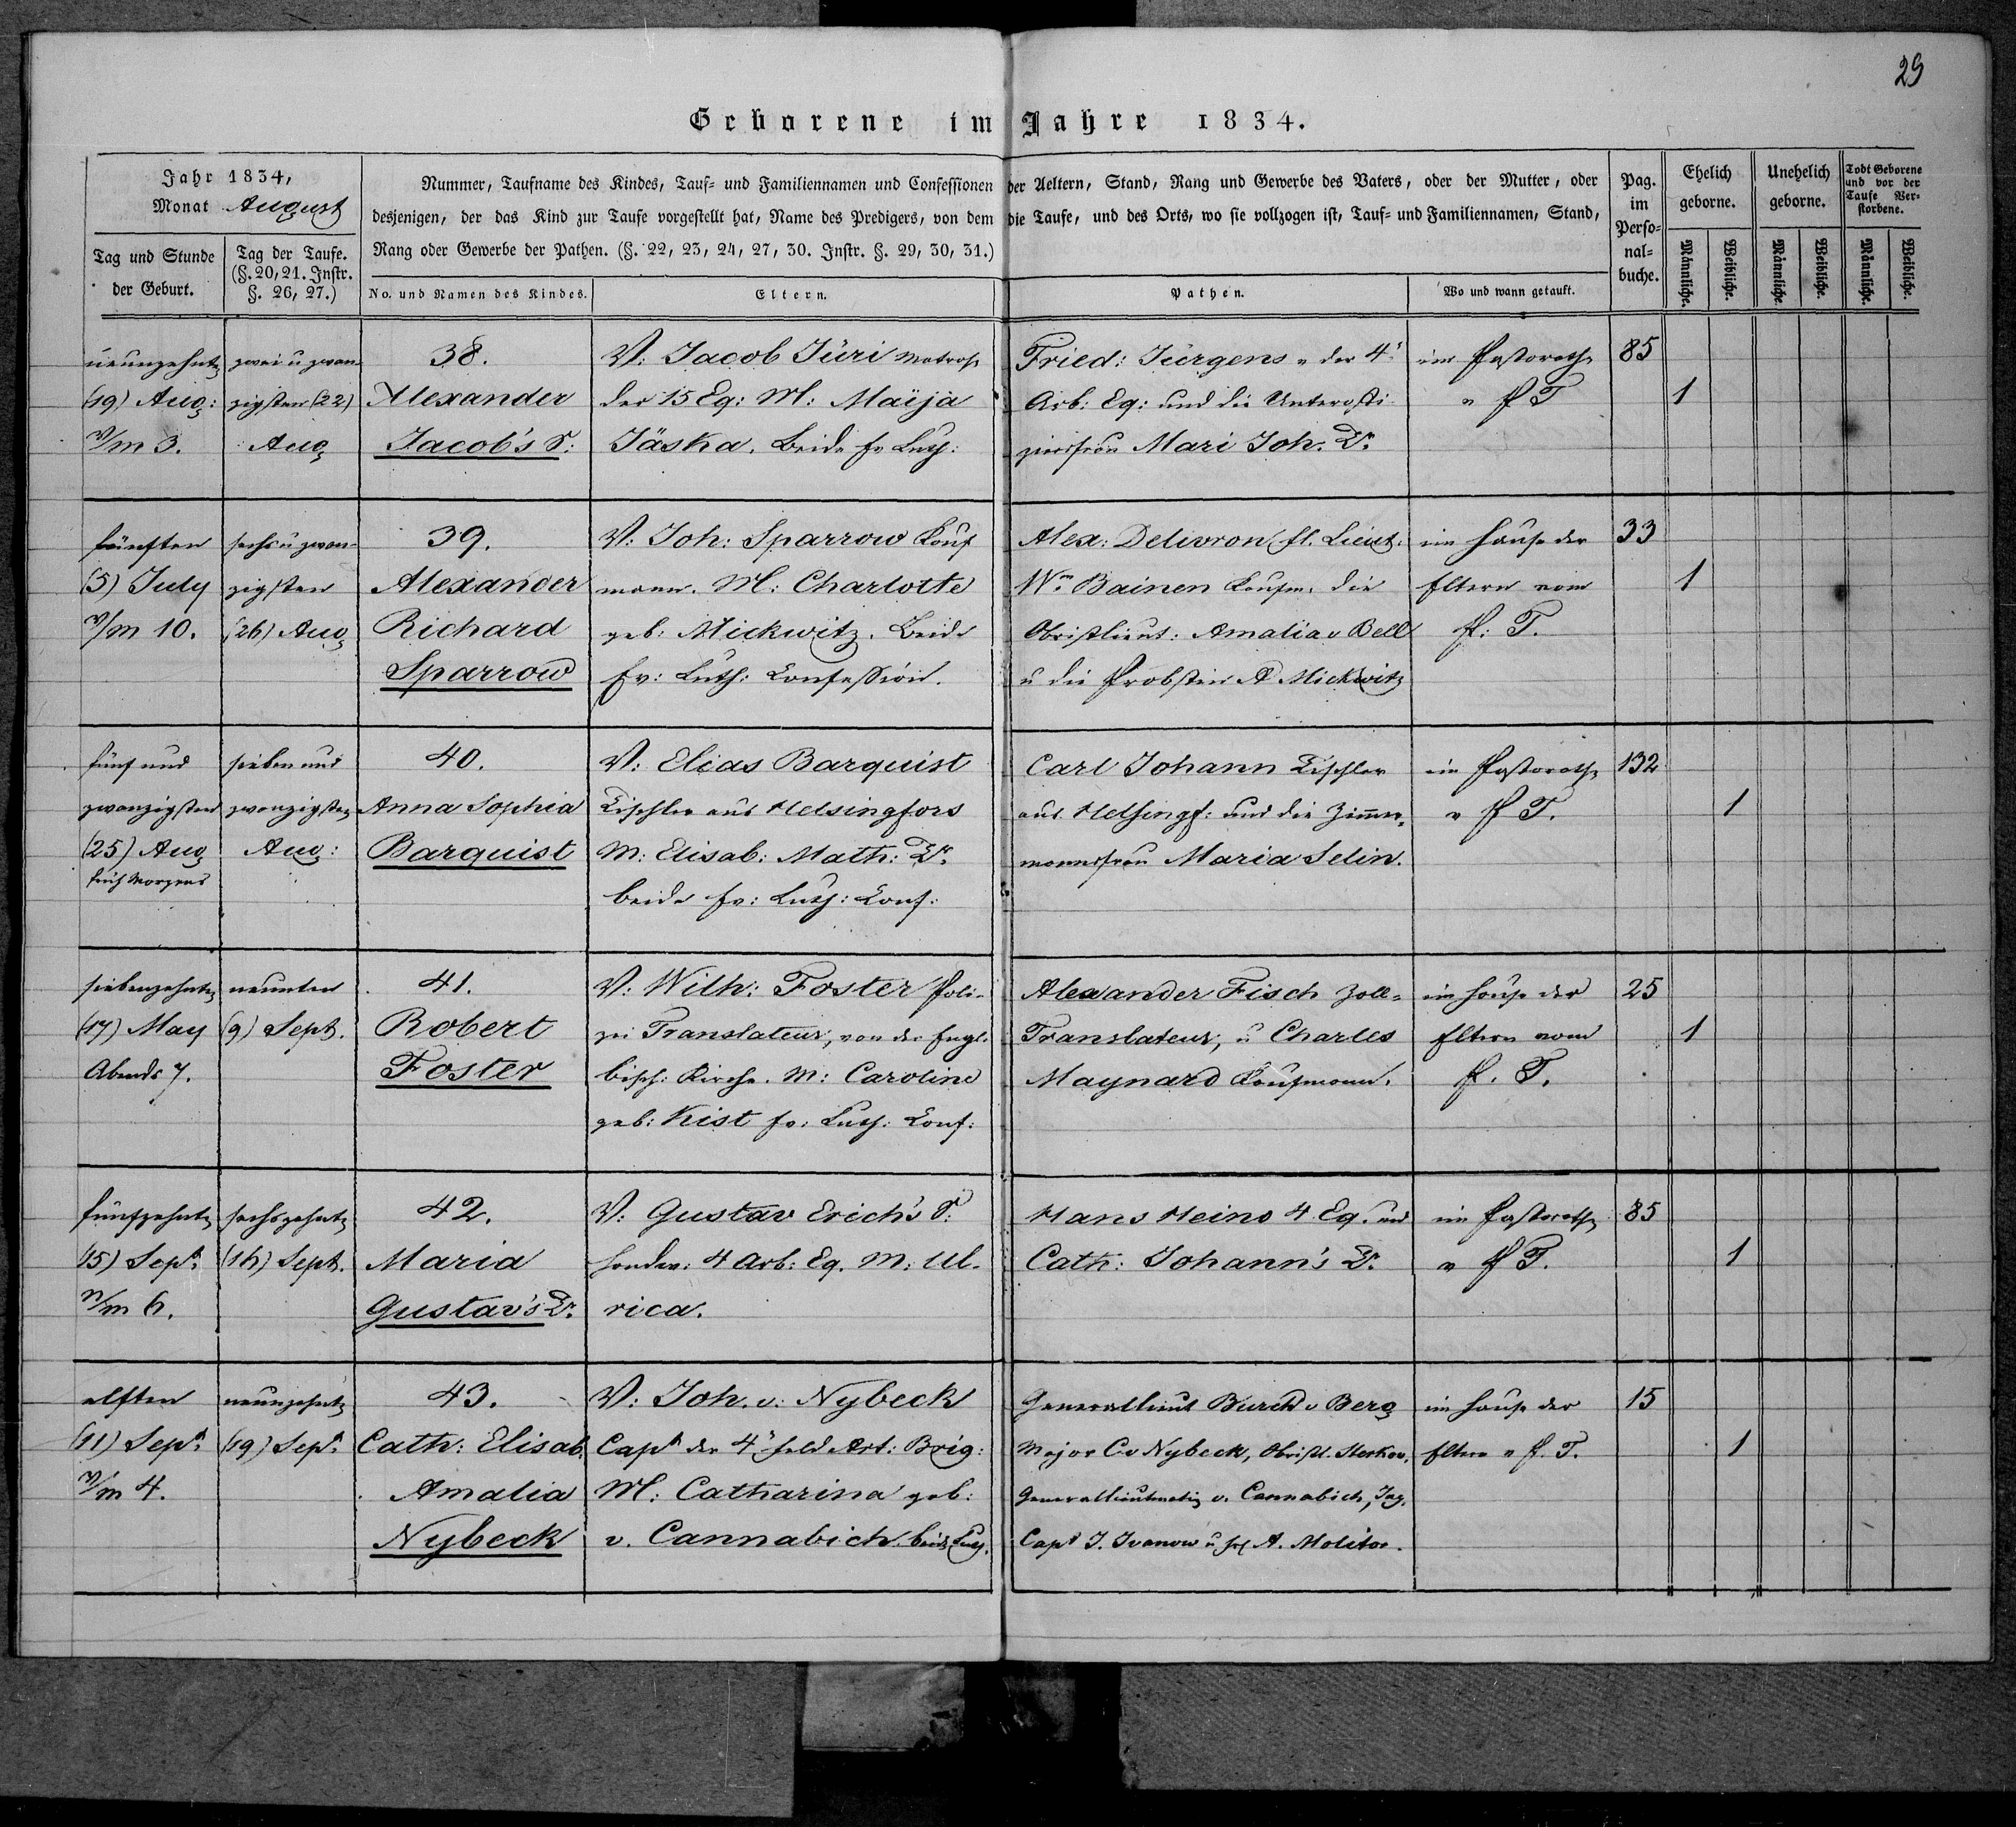 29
Geborene im Jahre 1834.
Jahr 1834,
Monat August
Tag und Stunde
der Geburt.
Tag der Taufe.
(§. 20, 21. Instr.
§. 26, 27.)
Nummer, Taufname des Kindes, Tauf- und Familiennamen und Confessionen der Aeltern, Stand, Rang und Gewerbe des Vaters, oder der Mutter, oder
desjenigen, der das Kind zur Taufe vorgestellt hat, Name des Predigers, von dem die Taufe, und des Orts, wo sie vollzogen ist, Tauf- und Familiennamen, Stand,
Rang oder Gewerbe der Pathen. (§. 22, 23, 24, 27, 30. Instr. §. 29, 30, 31.)
No. und Namen des Kindes.
Eltern.
Pathen.
Wo und wann getauft.
Pag.
im
Perso-
nal-
buche.
Ehelich
geborne.
Unehelich
geborne.
Todt Geborene
und vor der
Taufe Ver-
storbene.
Männliche.
Weibliche.
Männliche.
Weibliche.
Männliche.
Weibliche.
neunzehnt
(19) Aug:
V/m 3.
zwei u zwan-
zigsten (22)
Aug
38.
Alexander
Jacob's S:
V: Jacob Jüri Matrose
der 15 Eq: M: Maija
Jäska. Beide Ev Luth:
Fried: Jürgens der 4
Arb: Eq: und die Unteroffi-
ziersfrau Mari Joh. Tr
im Pastorathe
v P T
85
1
fünften
(5) July
V/m 10.
sechs u zwan-
zigsten
(26) Aug
39.
Alexander
Richard
Sparrow
V: Joh: Sparrow Kauf
mann. M: Charlotte
geb: Mickwitz. Beide
Ev: Luth: Confession.
Alex: Delivron fl. Lieut:
Wm Bainen Kaufm. die
Obristlieut: Amalia v Bell
u die Probstin A Mickwitz
im Hause der
Eltern vom
P: T.
33
1
fünf und
zwanzigsten
(25) Aug
früh Morgens
sieben und
zwanzigsten
Aug:
40.
Anna Sophia
Barquist
V: Elias Barquist
Tischler aus Helsingfors
M: Elisab: Math: Tr.
beide Ev: Luth: Conf:
Carl Johann Tischler
aus Helsingf: und die Zimmer-
mannsfrau Maria Selin.
im Pastorathe
v P T.
132
1
siebenzehnt
(17) May
Abends 7.
neunten
(9) Sept.
41.
Robert
Foster
V: Wilh: Foster Poli-
zei Translateur, von der Engl.
bisch: Kirche. M: Caroline
geb: Kist Ev: Luth: Conf:
Alexander Fisch Zoll-
Translateur, u Charles
Maynard Kaufmann.
im Hause der
Eltern vom
P. T.
25
1
fünfzehnt
(15) Sept
N/m 6.
sechszehnt
(16) Sept.
42.
Maria
Gustav's Tr.
V: Gustav Erich's S:
4 Arb: Eq. M: Ul-
rica.
Hans Heino 4 Eq. und
Cath: Johann's Tr.
im Pastorathe
v P T.
85
1
elften
(11) Sept
V/m 4.
neunzehnt
(19) Sept
43.
Cath: Elisab:
Amalia
Nybeck
V: Joh. v: Nybeck
Capt der 4 Feld Art: Brig:
M: Catharina geb:
v. Cannabich. beide Luth.
Generallieut Burch v Berg
Major C v Nybeck, Obristl.
Generallieutnatin v. Cannabich, Ing.
Capt J. Ivanow u Frl A. Molitor.
im Hause der
Eltern v P. T.
15
1